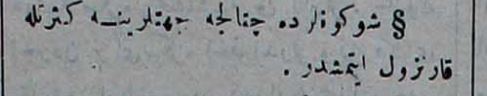 § شوكونلرده چتالجه جهتلرينه كثرتله
قار نزول ايتمشدر .